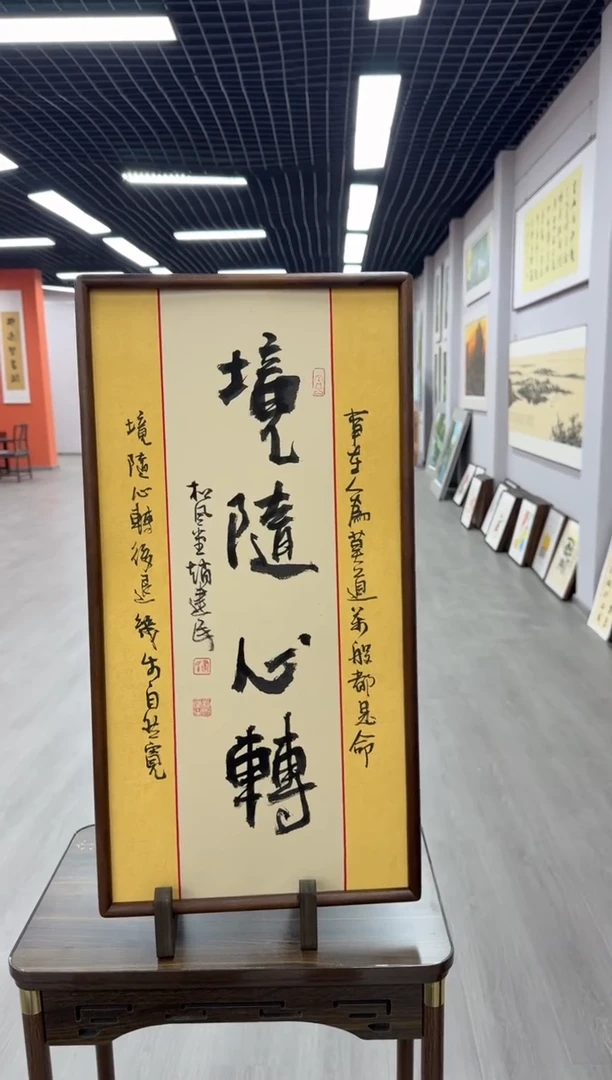 事在人為莫道萬般都是命
境隨心轉
松風堂趙建民
境隨心轉後退幾步自然寬